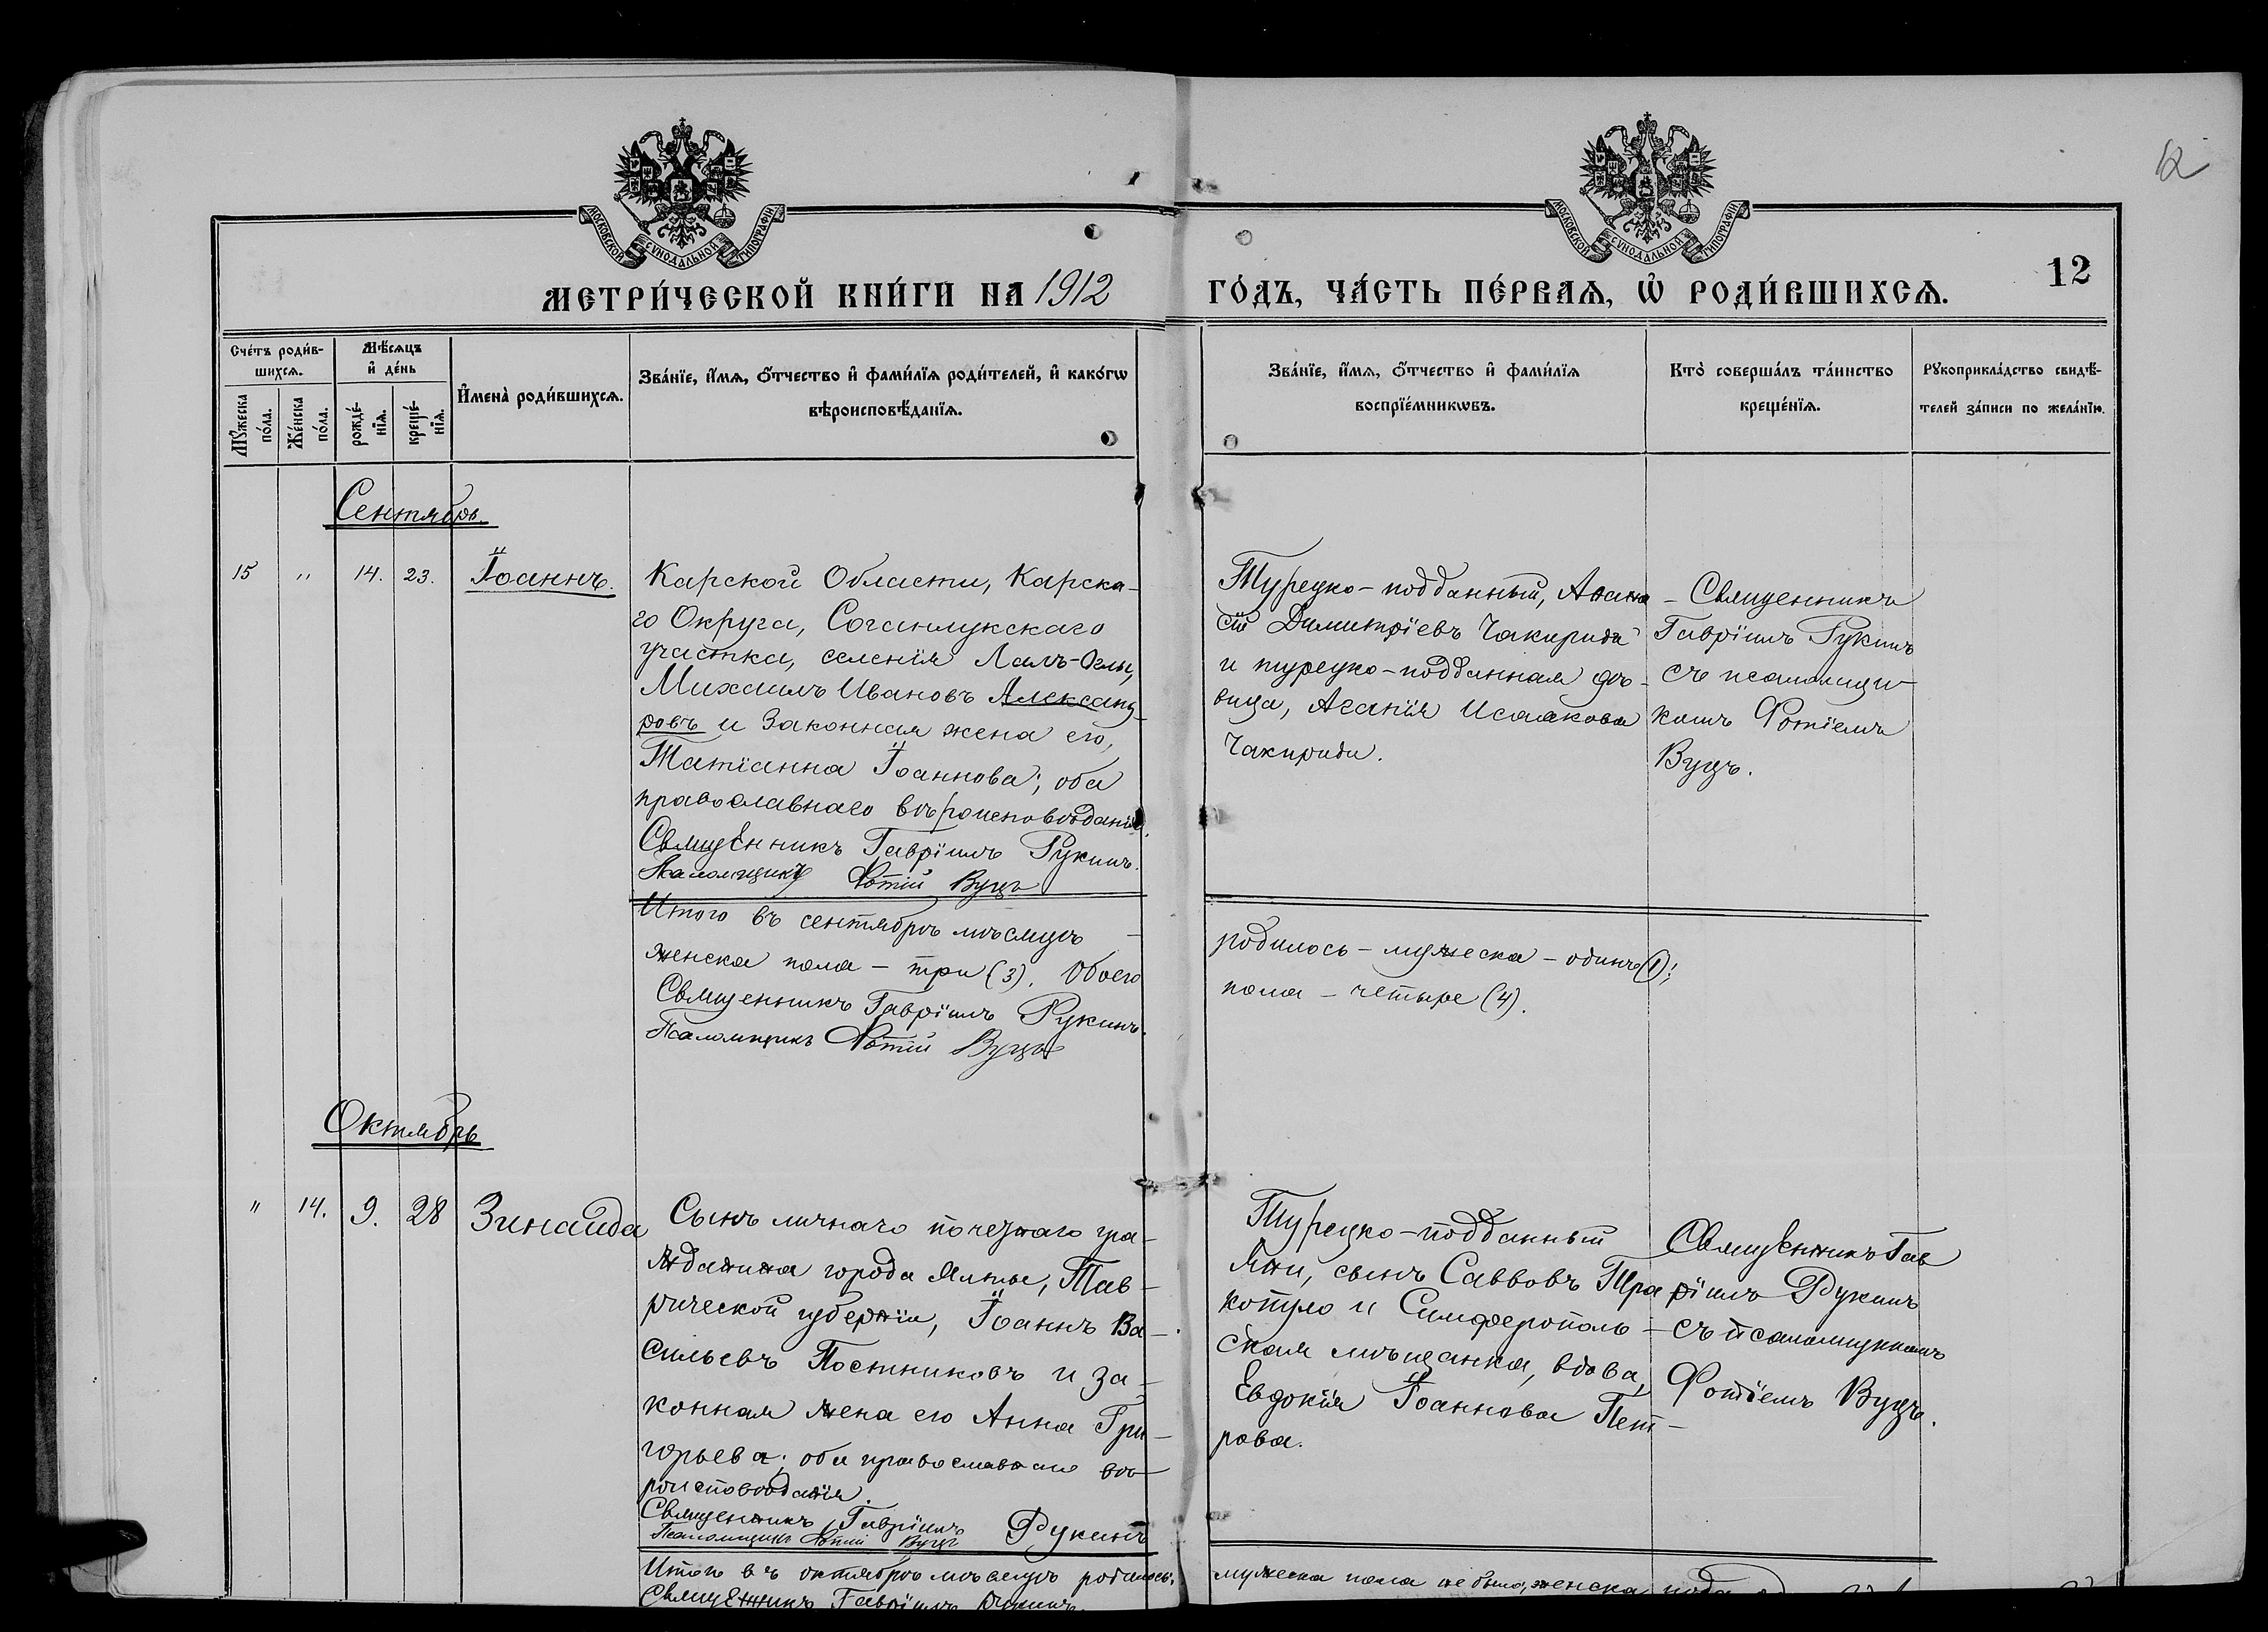 МОСКОВСКОЙ СѴНОДАЛЬНОЙ ТИПОГРАФІИ
МОСКОВСКОЙ СѴНОДАЛЬНОЙ ТИПОГРАФІИ
12
12
МЕТРИ́ЧЕСКОЙ КНИ́ГИ НА 1912
ГО́ДЪ, ЧА́СТЬ ПЕ́РВАѦ, Ѡ҆ РОДИ́ВШИХСѦ.
Сче́тъ роди́в-
шихсѧ.
Мꙋ́жеска по́ла.
Же́нска по́ла.
Мѣ́сѧцъ
и҆ де́нь
рожде́-
нїѧ.
креще́-
нїѧ.
И҆мена̀ роди́вшихсѧ.
Зва́нїе, и҆́мѧ, ѻ҆́тчество и҆ фами́лїѧ роди́телей, и҆ како́гѡ
вѣроисповѣ́данїѧ.
Зва́нїе, и҆́мѧ, ѻ҆́тчество и҆ фами́лїѧ
воспрїе́мникѡвъ.
Кто̀ соверша́лъ та́инство
креще́нїѧ.
Рꙋкоприкла́дство свидѣ́-
телей за́писи по жела́нїю.
Сентябрь.
15 " 14. 23. Іоаннъ.
Карской Области, Карска-
го Округа, Соганлукскаго
участка, селенія Лалъ-Оглы,
Михаилъ Ивановъ Александ-
ровъ и законная жена его,
Татіанна Іоаннова; оба
православнаго вѣроисповѣданія.
Священникъ Гавріилъ Рукинъ.
Псаломщикъ Фотій Вуцъ
Турецко-подданный, Афана
сій Димитріевъ Чакириди
и турецко-подданная дѣ-
вица, Агапія Исаакова
Чакириди.
- Священникъ
Гавріилъ Рукинъ
съ псаломщи-
комъ Фотіемъ
Вуцъ.
Итого въ сентябрѣ мѣсяцѣ -
родилось - мужеска - одинъ (1);
женска пола - три (3). Обоего
пола - четыре (4).
Священникъ Гавріилъ Рукинъ.
Псаломщикъ Фотій Вуцъ
Октябрь
" 14. 9. 28 Зинаида
Сынъ личнаго почетнаго гра-
жданина города Ялты, Тав-
рической губерніи, Іоаннъ Ва-
сильевъ Постниковъ и за-
конная жена его Анна Гри-
горьева; оба православнаго вѣ-
роисповѣданія.
Священникъ Гавріилъ Рукинъ
Псаломщикъ Фотій Вуцъ
Турецко-подданный
Яни, сынъ Саввовъ Тра
котуло и Симферополь-
ская мѣщанка, вдова,
Евдокія Іоаннова Пет-
рова.
Священникъ Гав
ріилъ Рукинъ
съ псаломщикомъ
Фотіемъ Вуцъ.
Итого въ октябрѣ мѣсяцѣ родилось:
мужеска пола не было, женска пола
Священникъ Гавріилъ Рукинъ.